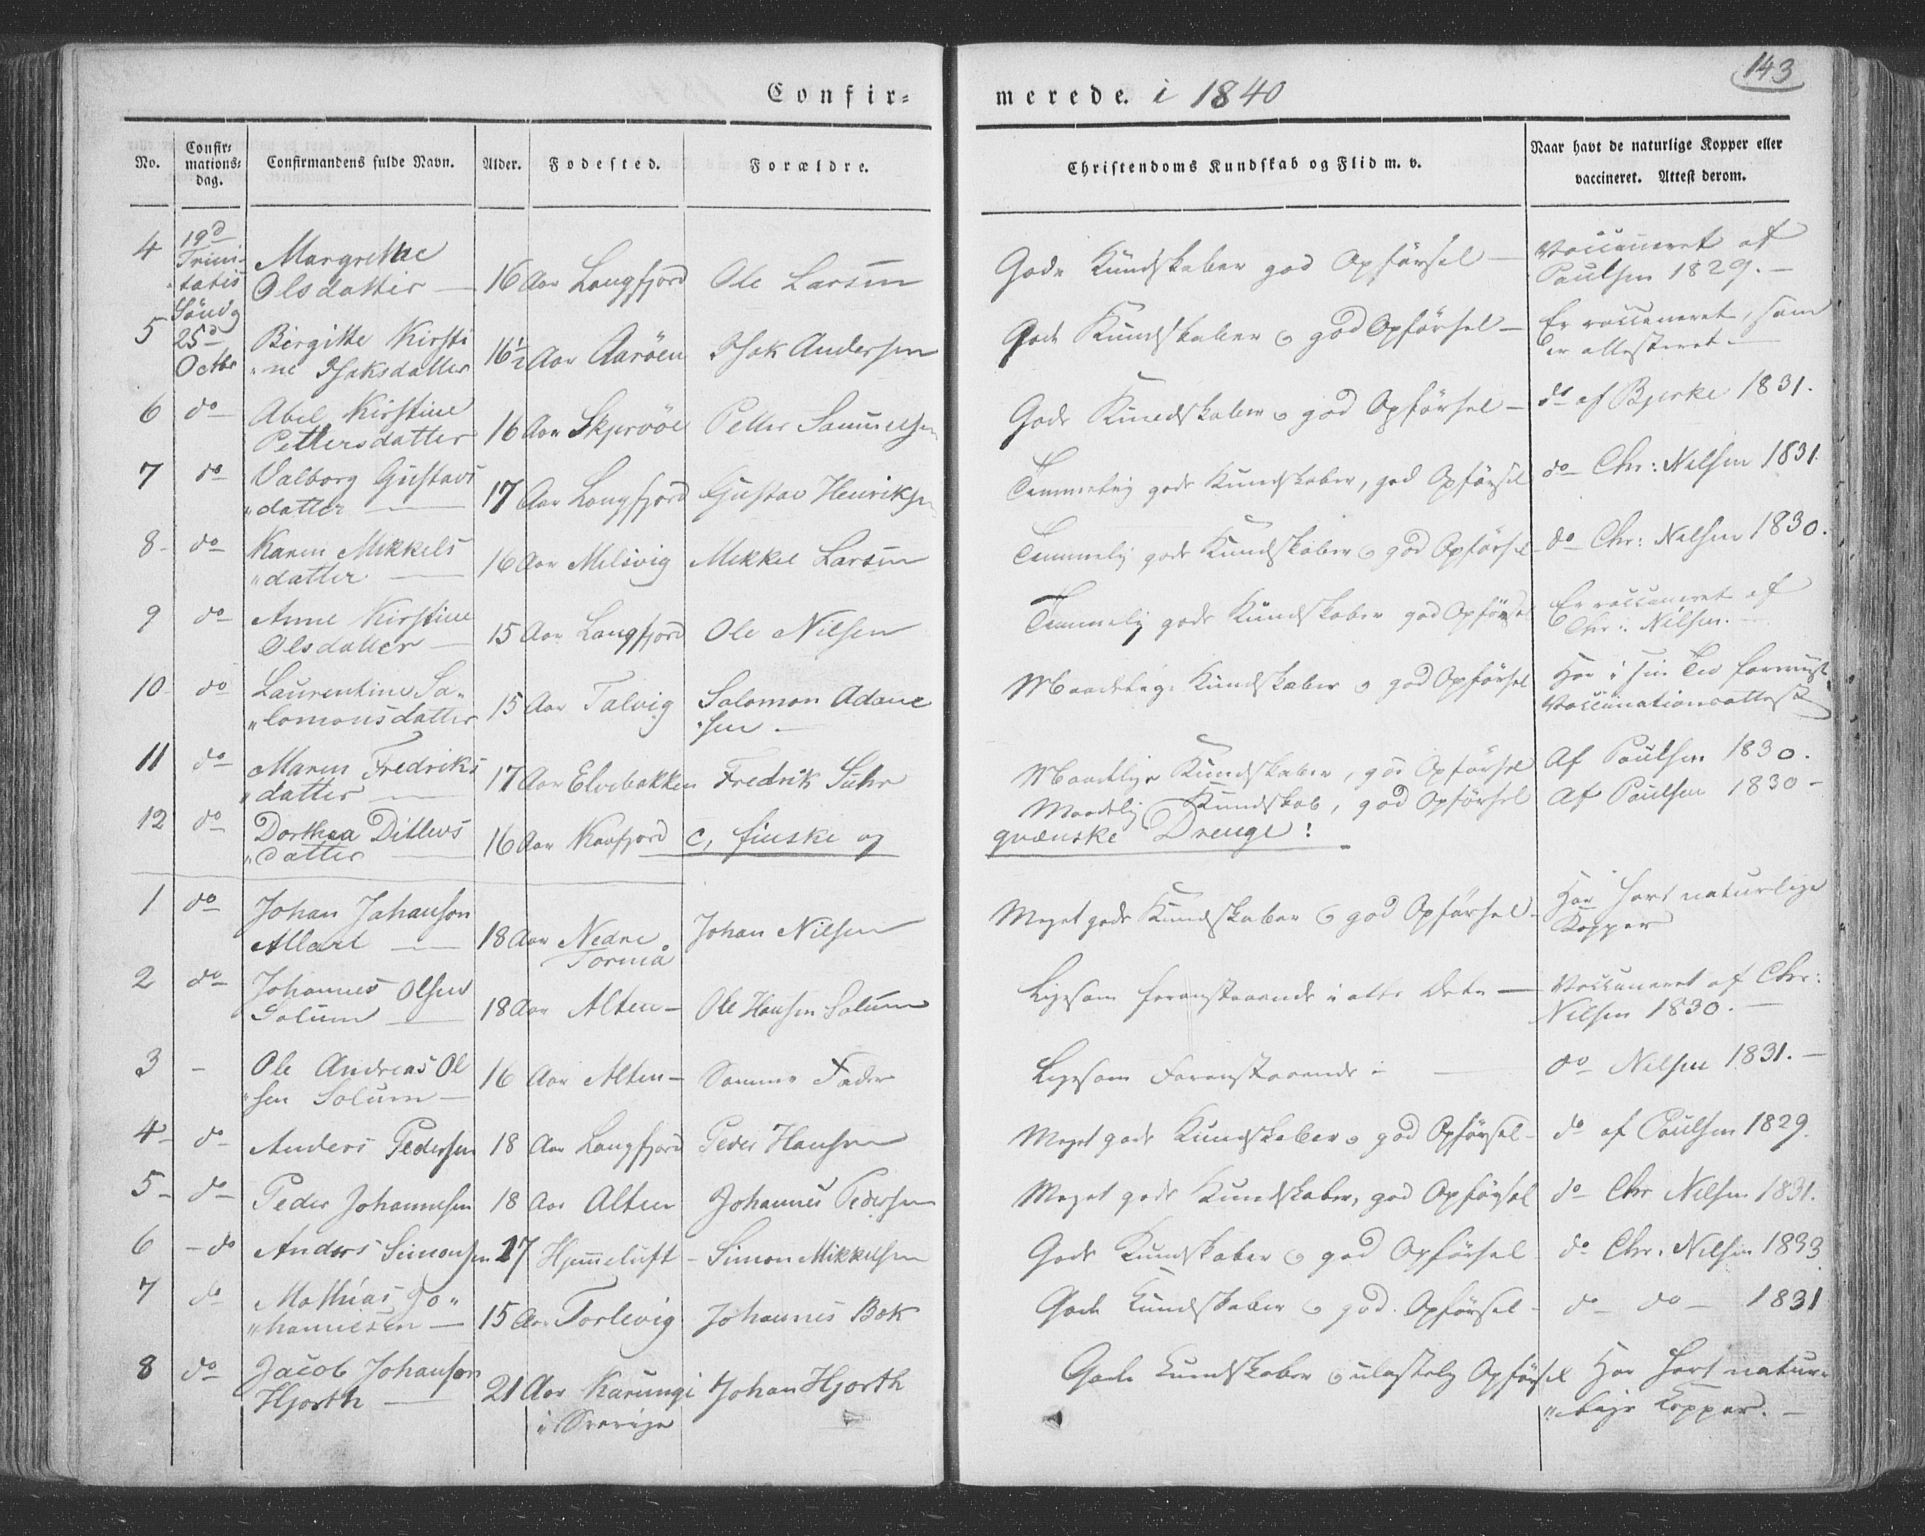 143
Confir= merede. i 1840
No. Confir=mations=dag. Confirmandens fulde Navn. Alder. Fodested. Forældre. Christendoms Kundskab og Flid m. v. Naar havt de naturlige Kopper eller vaccineret. Attest derom.
4 19d Trini-tatis Söndg 25d Octbr Margrethe Olsdatter — 16 Aar Langfjord Ole Larsen Gode Kundskaber god Opførsel — Vaccineret af Paulsen 1829. —
5 Birgitte Kirsti „ne Isaksdatter 16½ Aar Aarøen Isak Andersen Gode Kundskaber og god Opførsel — Er vaccineret, som er attesteret —
6 do Abel Kirstine Pettersdatter 16 Aar Skjervöe Petter Samuelsen Gode Kundskaber og god Opførsel — do af Bjerke 1831.
7 do Valborg Gustavs „datter — 17 Aar Langfjord Gustav Henriksen Temmelig gode Kundskaber, god Opførsel do Chr: Nilsen 1831.
8 do Karen Mikkels „datter — 16 Aar Melsvig Mikkel Larsen Temmelig gode Kundskaber og god Opførsel do Chr: Nilsen 1830.
9 do Anne Kirstine Olsdatter — 15 Aar Langfjord Ole Nilsen Temmelig gode Kundskaber god Opførsel Er vaccineret af Chr: Nilsen. —
10 do Laurentine Sa„ „lomonsdatter 15 Aar Talvig Salomon Adam „sen — Maadelige Kundskaber og god Opførsel Har i sin Tid foreviist Vaccinationsattest
11 do Maren Fredriks „datter — 17 Aar Elvebakken Fredrik Suhr Maadelige Kundskaber, god Opførsel Af Paulsen 1830.
12 do Dorthea Ditlevs „datter — 16 Aar Kaafjord Maadelig Kundskab, god Opførsel Af Paulsen 1830 —
c, finske og qvænske Drenge:
1 do Johan Johanson — 18 Aar Nedre Torneå Johan Nilsen Meget gode Kundskaber og god Opførsel — Har havt naturlige Kopper
2 do Johannes Olsen Solum — 18 Aar Alten — Ole Hansen Solum Ligesom foranstaaende i alle Dele — Vaccineret af Chr: Nilsen 1830. —
3 - Ole Andreas Ol „sen Solum — 16 Aar Alten — Samme Fader Ligesom Foranstaaende — do Nilsen 1831. —
4 - do Anders Pedersen 18 Aar Langfjord Peder Hansen Meget gode Kundskaber og god Opførsel — do af Paulsen 1829.
5 - do Peder Johannesen 18 Aar Alten Johannes Pedersen Meget gode Kundskaber, god Opførsel do Chr Nilsen 1831.
6 - do Anders Simonsen 17 Hjemmeluft — Simon Mikkelsen Gode Kundskaber og god Opførsel do Chr. Nilsen 1833
7 do Mathias Jo„ „hannesen — 15 Aar Torlevig Johannes Bok Gode Kundskaber og god Opførsel — do — do — 1831
8 do Jacob Johanson Hjorth — 21 Aar Karungi i Sverige Johan Hjorth Gode Kundskaber og ulastelig Opførsel Har havt natur= „lige Kopper. —